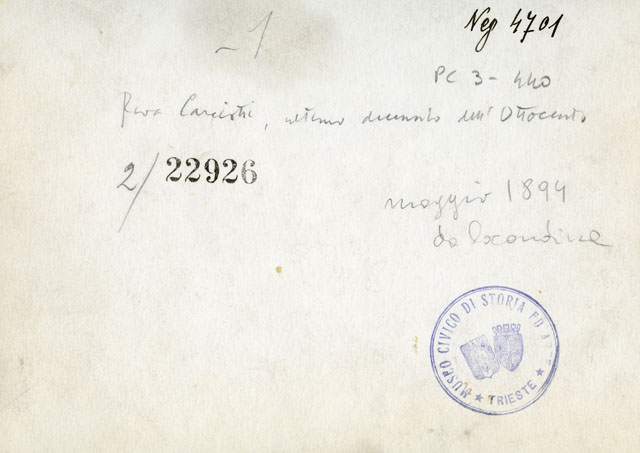 - 1
Neg 4701
PC 3 - 440
Riva Carciotti, ultimo decennio dell'Ottocento
2/ 22926
maggio 1894
da
MUSEO CIVICO DI STORIA ED ARTE
★ TRIESTE ★